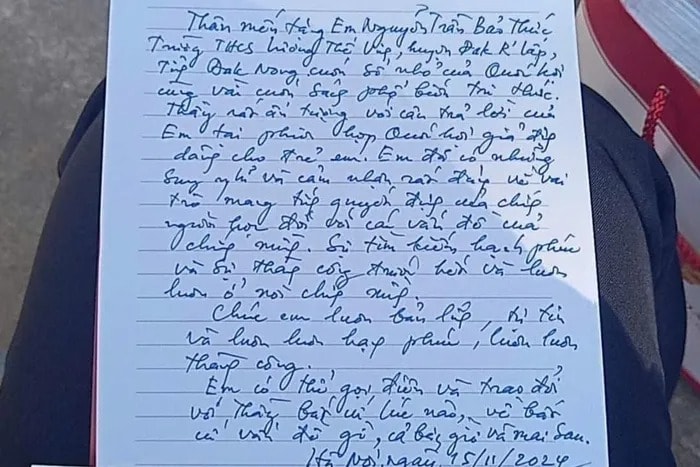 Thân mến tặng Em Nguyễn Trần Bảo Thức
Trường THCS Lương Thế Vinh, huyện Đak R'lấp,
Tỉnh Đak Nong cuốn Sổ nhỏ của Quốc hội
cùng vài cuốn Sách phổ biến tri thức.
Thầy rất ấn tượng với câu trả lời của
Em tại phiên họp Quốc hội giả định
dành cho trẻ em. Em đã có những
suy nghĩ và cảm nhận rất đúng về vai
trò mang tính quyết định của chính
người học đối với các vấn đề của
chính mình. Sự tìm kiếm hạnh phúc
và sự thành công trước hết và luôn
luôn ở nơi chính mình.
Chúc em luôn bản lĩnh, tự tin
và luôn luôn hạnh phúc, luôn luôn
thành công.
Em có thể gọi điện và trao đổi
với Thầy bất cứ lúc nào, về bất
cứ vấn đề gì, cả bây giờ và mai sau.
Hà Nội, ngày 15/11/2024